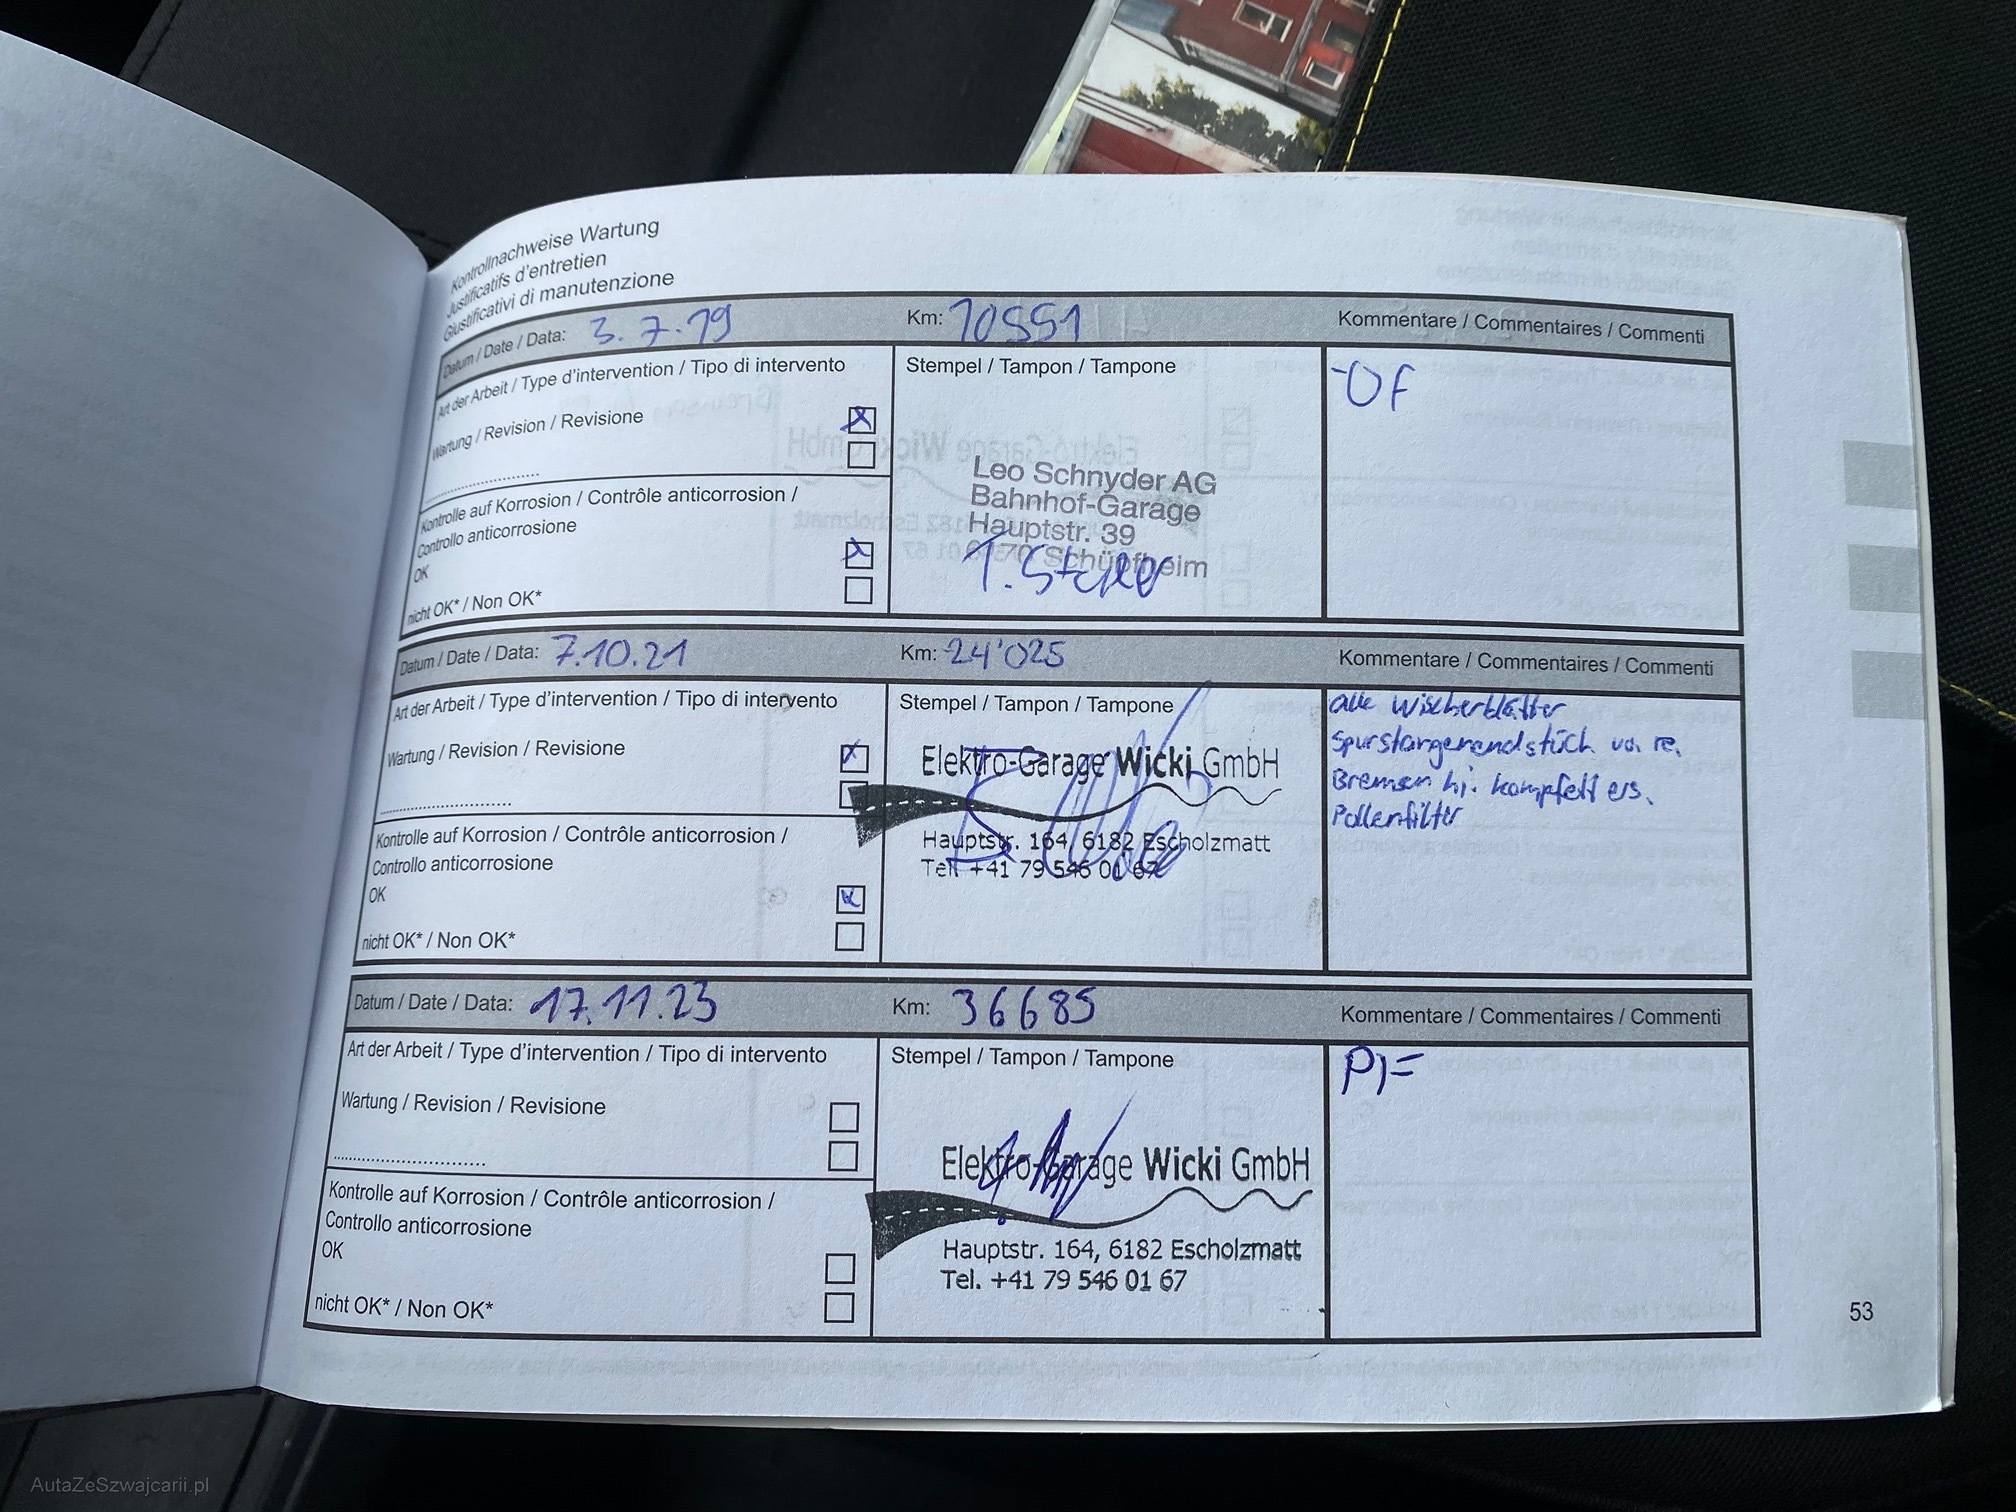 Kontrollnachweise Wartung
Justificatifs d'entretien
Giustificativi di manutenzione
Datum / Date / Data: 3.7.19 Km: 10551 Kommentare / Commentaires / Commenti
Art der Arbeit / Type d'intervention / Tipo di intervento
Wartung / Revision / Revisione
Kontrolle auf Korrosion / Contrôle anticorrosion /
Controllo anticorrosione
OK
nicht OK* / Non OK*
Stempel / Tampon / Tampone
Leo Schnyder AG
Bahnhof-Garage
Hauptstr. 39
Schüpfheim
-OF
Datum / Date / Data: 7.10.21 Km: 24'025 Kommentare / Commentaires / Commenti
Art der Arbeit / Type d'intervention / Tipo di intervento
Wartung / Revision / Revisione
Kontrolle auf Korrosion / Contrôle anticorrosion /
Controllo anticorrosione
OK
nicht OK* / Non OK*
Stempel / Tampon / Tampone
Elektro-Garage Wicki GmbH
Hauptstr. 164, 6182 Escholzmatt
Tel. +41 79 546 01 67
alle Wischerblätter
Spurstangenendstück vo. re.
Bremsen hi. komplett ers.
Pollenfilter
Datum / Date / Data: 17.11.23 Km: 36685 Kommentare / Commentaires / Commenti
Art der Arbeit / Type d'intervention / Tipo di intervento
Wartung / Revision / Revisione
Kontrolle auf Korrosion / Contrôle anticorrosion /
Controllo anticorrosione
OK
nicht OK* / Non OK*
Stempel / Tampon / Tampone
Elektro-Garage Wicki GmbH
Hauptstr. 164, 6182 Escholzmatt
Tel. +41 79 546 01 67
PF
53
AutaZeSzwajcarii.pl